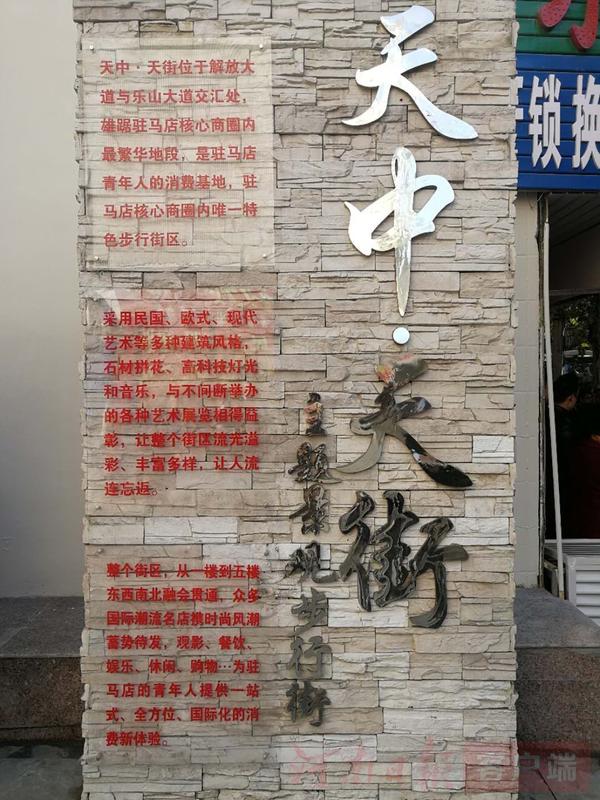 天中·天街
主题景观步行街
天中·天街位于解放大
道与乐山大道交汇处,
雄踞驻马店核心商圈内
最繁华地段，是驻马店
青年人的消费基地，驻
马店核心商圈内唯一特
色步行街区。
采用民国、欧式、现代
艺术等多种建筑风格，
石材拼花、高科技灯光
和音乐，与不间断举办
的各种艺术展览相得益
彰，让整个街区流光溢
彩、丰富多样，让人流
连忘返。
整个街区，从一楼到五楼
东西南北融会贯通，众多
国际潮流名店携时尚风潮
蓄势待发，观影、餐饮、
娱乐、休闲、购物…为驻
马店的青年人提供一站
式、全方位、国际化的消
费新体验。
锁换
河南日报客户端